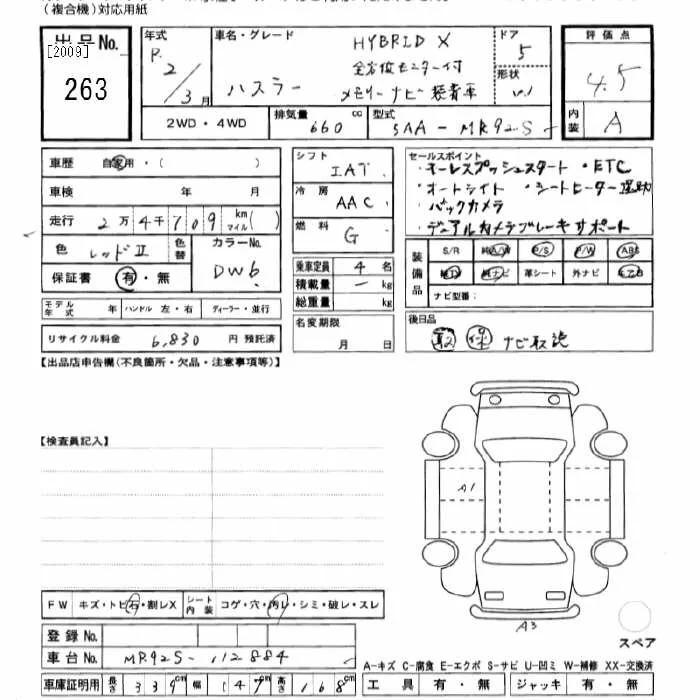 (複合機)対応用紙
出品No.
[2009]
263
年式
R.2/3月
車名・グレード
ハスラー
HYBRID X
全方位モニター付
メモリーナビ装着車
ドア
5
形状
V.1
評価点
4.5
内装
A
2WD・4WD
排気量 660 cc
型式 5AA-MR92S
車歴 自家用・( )
車検 年 月
走行 2万4千709 km マイル( )
色 レッドⅡ 色替
カラーNo.
DW6
保証書 有・無
モデル年式 年 ハンドル 左・右 ディーラー・並行
リサイクル料金 6,830 円 預託済
シフト IAT
冷房 AAC
燃料 G
乗車定員 4 名
積載量 - kg
総重量 kg
名変期限
月 日
セールスポイント
・キーレスプッシュスタート ・ETC
・オートライト ・シートヒーター運助
・バックカメラ
・デュアルカメラブレーキサポート
装備品
S/R 純A/W P/S P/W ABS
純TV 純ナビ 革シート 外ナビ エアB
ナビ型番:
後日品
取 保 ナビ取説
【出品店申告欄(不良箇所・欠品・注意事項等)】
【検査員記入】
A1
A3
スペア
FW キズ・トビ石・割レX シート内装 コゲ・穴・汚レ・シミ・破レ・スレ
登録No.
車台No. MR92S-112884
A-キズ C-腐食 E-エクボ S-サビ U-凹ミ W-補修 XX-交換済
車庫証明用 長さ 339cm 幅 147cm 高さ 168cm
工具 有・無 ジャッキ 有・無